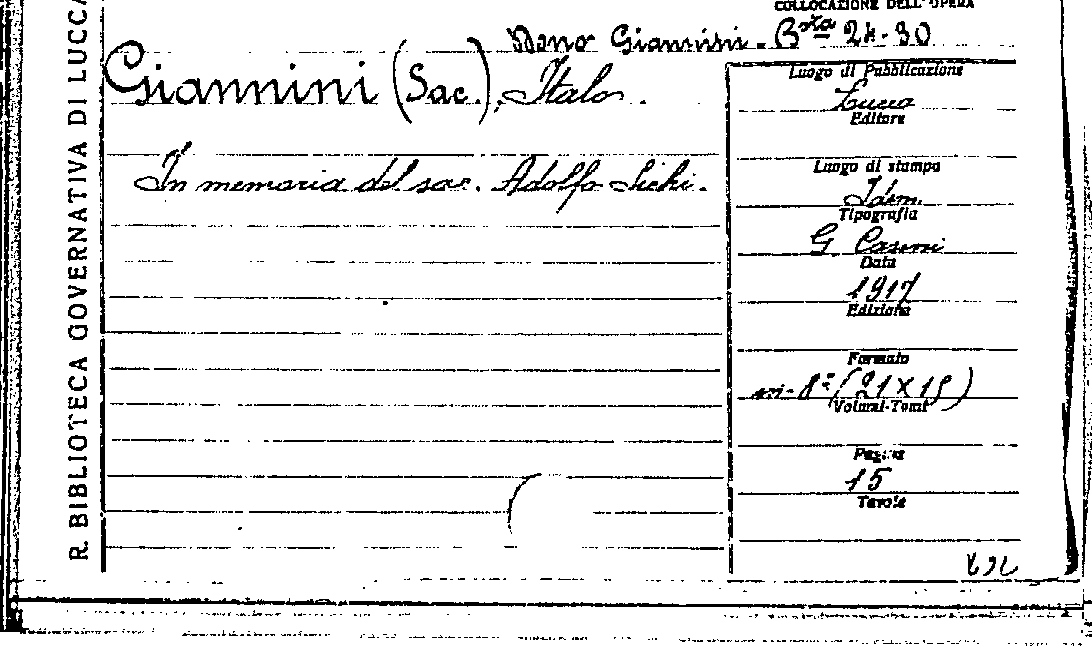 COLLOCAZIONE DELL' OPERA
Dono Giannini. Bsta 24-30
Giannini (Sac.), Italo.
In memoria del sac. Adolfo Sichi.
R. BIBLIOTECA GOVERNATIVA DI LUCCA
Luogo di Pubblicazione
Lucca
Editore
Luogo di stampa
Idem.
Tipografia
G Casini
Data
1917
Edizione
Formato
in-8º (21 X 15)
Volumi-Tomi
Pagine
15
Tavole